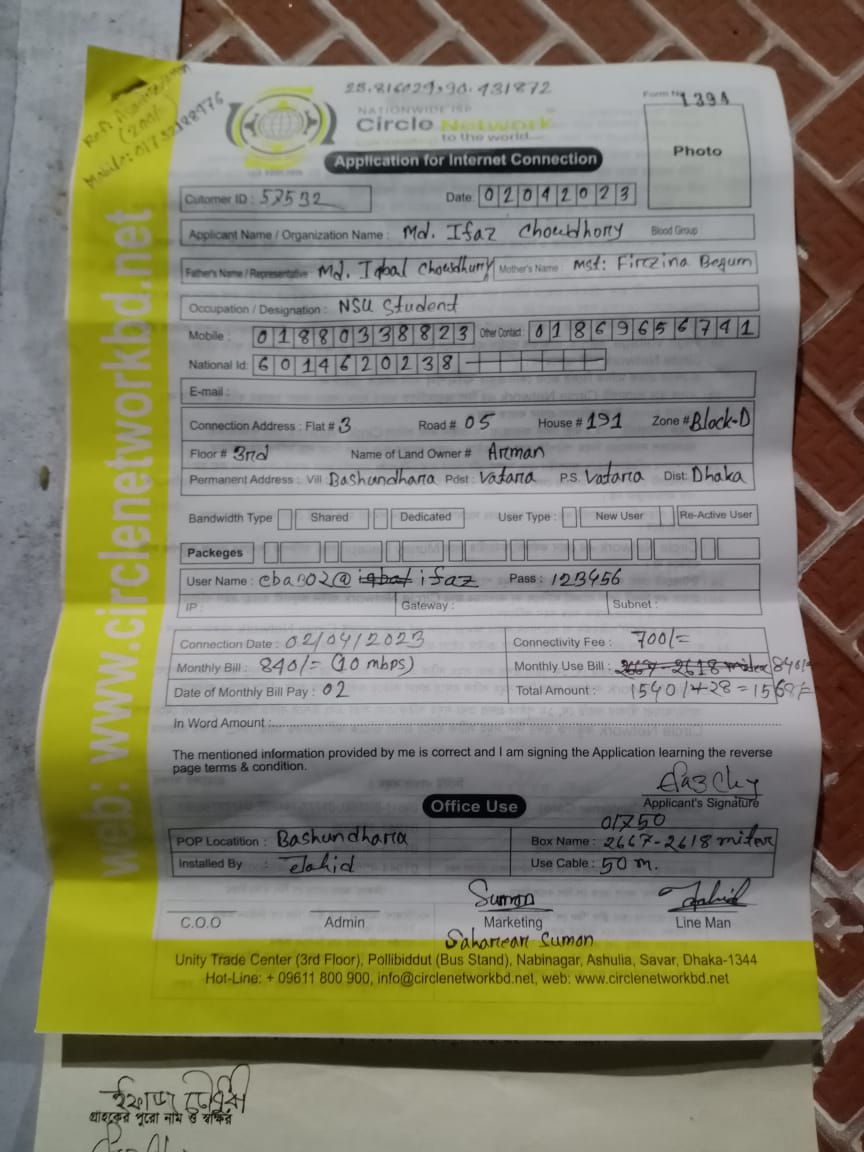 28.816029,90.431872
Form No 1394
(200/-
Mobile: 01752188976
NATIONWIDE ISP
Circle Network
to the world...
Photo
Application for Internet Connection
Cutomer ID : 57532 Date: 02042023
Applicant Name / Organization Name : Md. Ifaz Chowdhory Blood Group :
Father's Name / Representative Md. Iqbal Chowdhury Mother's Name : Mst: Firzina Begum
Occupation / Designation : NSU Student
Mobile : 01880338823 Other Contact : 01869656741
National Id: 6014620238
E-mail :
Connection Address : Flat # 3 Road # 05 House # 191 Zone # Block-D
Floor # 3rd Name of Land Owner # Arman
Permanent Address : Vill Bashundhara Post : Vatara P.S. Vatara Dist: Dhaka
Bandwidth Type Shared Dedicated User Type : New User Re-Active User
Packeges
User Name : ifaz Pass : 123456
IP : Gateway : Subnet :
Connection Date : 02/04/2023 Connectivity Fee : 700/=
Monthly Bill : 840/= (10 mbps) Monthly Use Bill : 2667-2618 miter 840/-
Date of Monthly Bill Pay : 02 Total Amount : 1540/+28=1568/=
In Word Amount :
The mentioned information provided by me is correct and I am signing the Application learning the reverse
page terms & condition.
Applicant's Signature
Office Use
01750
POP Locatition : Bashundhara Box Name : 2667-2618 miter
Installed By : Jahid Use Cable : 50 m.
Suman Jahid
C.O.O Admin Marketing Line Man
Suman
Unity Trade Center (3rd Floor), Pollibiddut (Bus Stand), Nabinagar, Ashulia, Savar, Dhaka-1344
Hot-Line: + 09611 800 900, info@circlenetworkbd.net, web: www.circlenetworkbd.net
web: www.circlenetworkbd.net
ইফাজ চৌধুরী
গ্রাহকের পুরো নাম ও স্বাক্ষর